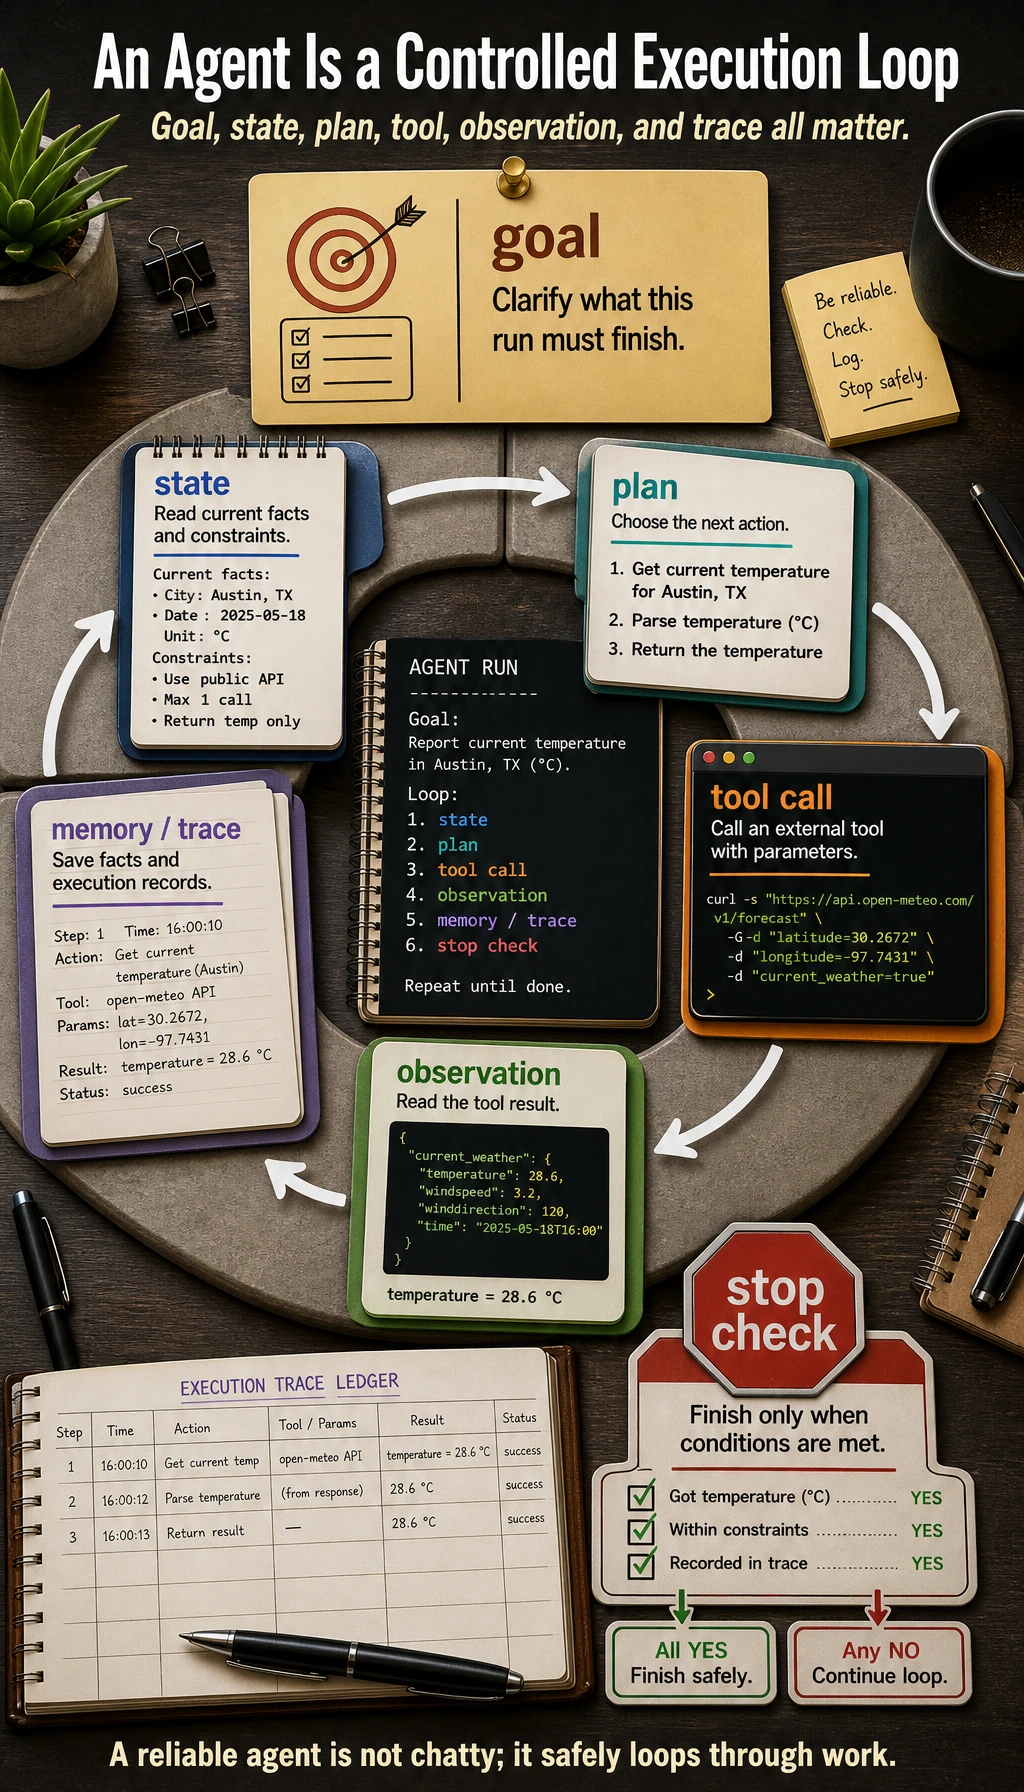 An Agent Is a Controlled Execution Loop
Goal, state, plan, tool, observation, and trace all matter.
goal
Clarify what this
run must finish.
Be reliable.
Check.
Log.
Stop safely.
state
Read current facts
and constraints.
Current facts:
• City: Austin, TX
• Date : 2025-05-18
Unit: °C
Constraints:
• Use public API
• Max 1 call
• Return temp only
plan
Choose the next action.
1. Get current temperature
for Austin, TX
2. Parse temperature (°C)
3. Return the temperature
AGENT RUN
-------------
Goal:
Report current temperature
in Austin, TX (°C).
Loop:
1. state
2. plan
3. tool call
4. observation
5. memory / trace
6. stop check
Repeat until done.
tool call
Call an external tool
with parameters.
curl -s "https://api.open-meteo.com/
v1/forecast" \
-G-d "latitude=30.2672" \
-d "longitude=-97.7431" \
-d "current_weather=true"
>
memory / trace
Save facts and
execution records.
Step: 1 Time: 16:00:10
Action: Get current
temperature (Austin)
Tool: open-meteo API
Params: lat=30.2672,
lon=-97.7431
Result: temperature = 28.6 °C
Status: success
observation
Read the tool result.
{
"current_weather": {
"temperature": 28.6,
"windspeed": 3.2,
"winddirection": 120,
"time": "2025-05-18T16:00"
}
}
temperature = 28.6 °C
stop
check
Finish only when
conditions are met.
Got temperature (°C) .......... YES
Within constraints .............. YES
Recorded in trace .............. YES
All YES
Finish safely.
Any NO
Continue loop.
EXECUTION TRACE LEDGER
Step Time Action Tool / Params Result Status
1 16:00:10 Get current temp open-meteo API temperature = 28.6 °C success
2 16:00:12 Parse temperature (from response) 28.6 °C success
3 16:00:13 Return result — 28.6 °C success
A reliable agent is not chatty; it safely loops through work.